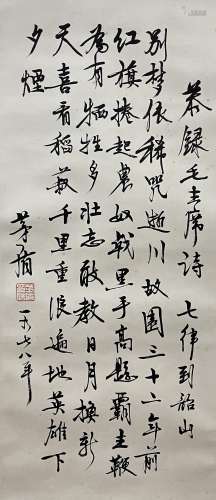 恭録毛主席詩 七律到韶山
別梦依稀咒逝川故園三十二年前
红旗捲起農奴戟黑手高懸霸主鞭
為有牺牲多壮志敢教日月換新
天喜看稻菽千里重浪遍地英雄下
夕煙
茅盾
一九七八年